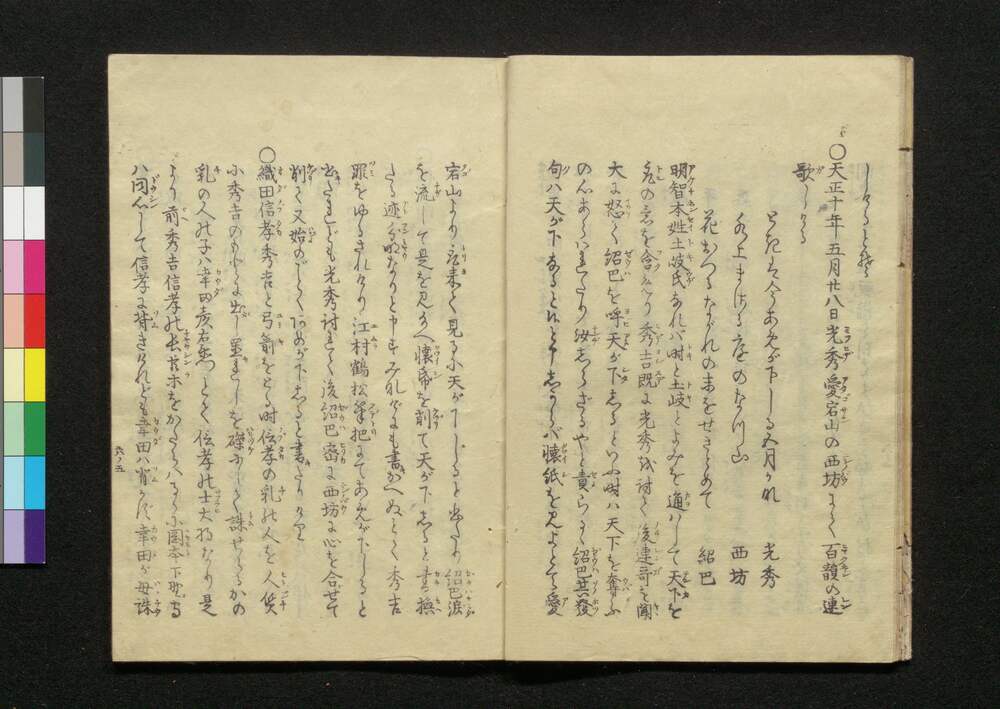 しけるとぞ
○天正十年五月廿八日光秀愛宕山の西坊にて百韻の連
歌しける
ときは今あめが下しる五月かな　光秀
水上まさる庭のなつ山　西坊
花おつるながれの末をせきとめて　紹巴
明智本姓土岐氏なれバ時と土岐とよみを通ハして天下を
取の意を含めり秀吉既に光秀を討て後連哥を聞
大に怒て紹巴を呼天が下しるといふ時ハ天下を奪ふ
の心あらハれたり汝しらざるやと責らる紹巴其發
句ハ天が下なるとれと申しからバ懐紙を見よとて愛
宕山より取来て見るに天が下しると也たり紹巴涙
を流して是を見給へ懐帋を削て天が下しると書換
たる迹分明なりと申すみれげにも書かへぬとて秀吉
罪をゆるされけり江村鶴松筆把にてあめが下しると
出たれども光秀討れて後紹巴密に西坊に心を合せて
削て又始のごとくあめが下しると書たりけり
○織田信孝秀吉と弓箭をとる時信孝の乳の人を人質
小秀吉のもとに出し置れしを磔にして誅せらるかの
乳の人の子ハ幸田彦右衛門とて信孝の士大将なり是
より前秀吉信孝の長臣ホをかたらハる小岡本下野守
ハ同心して信孝に背きけれども幸田ハ肯かで幸田が母誅
六ノ五